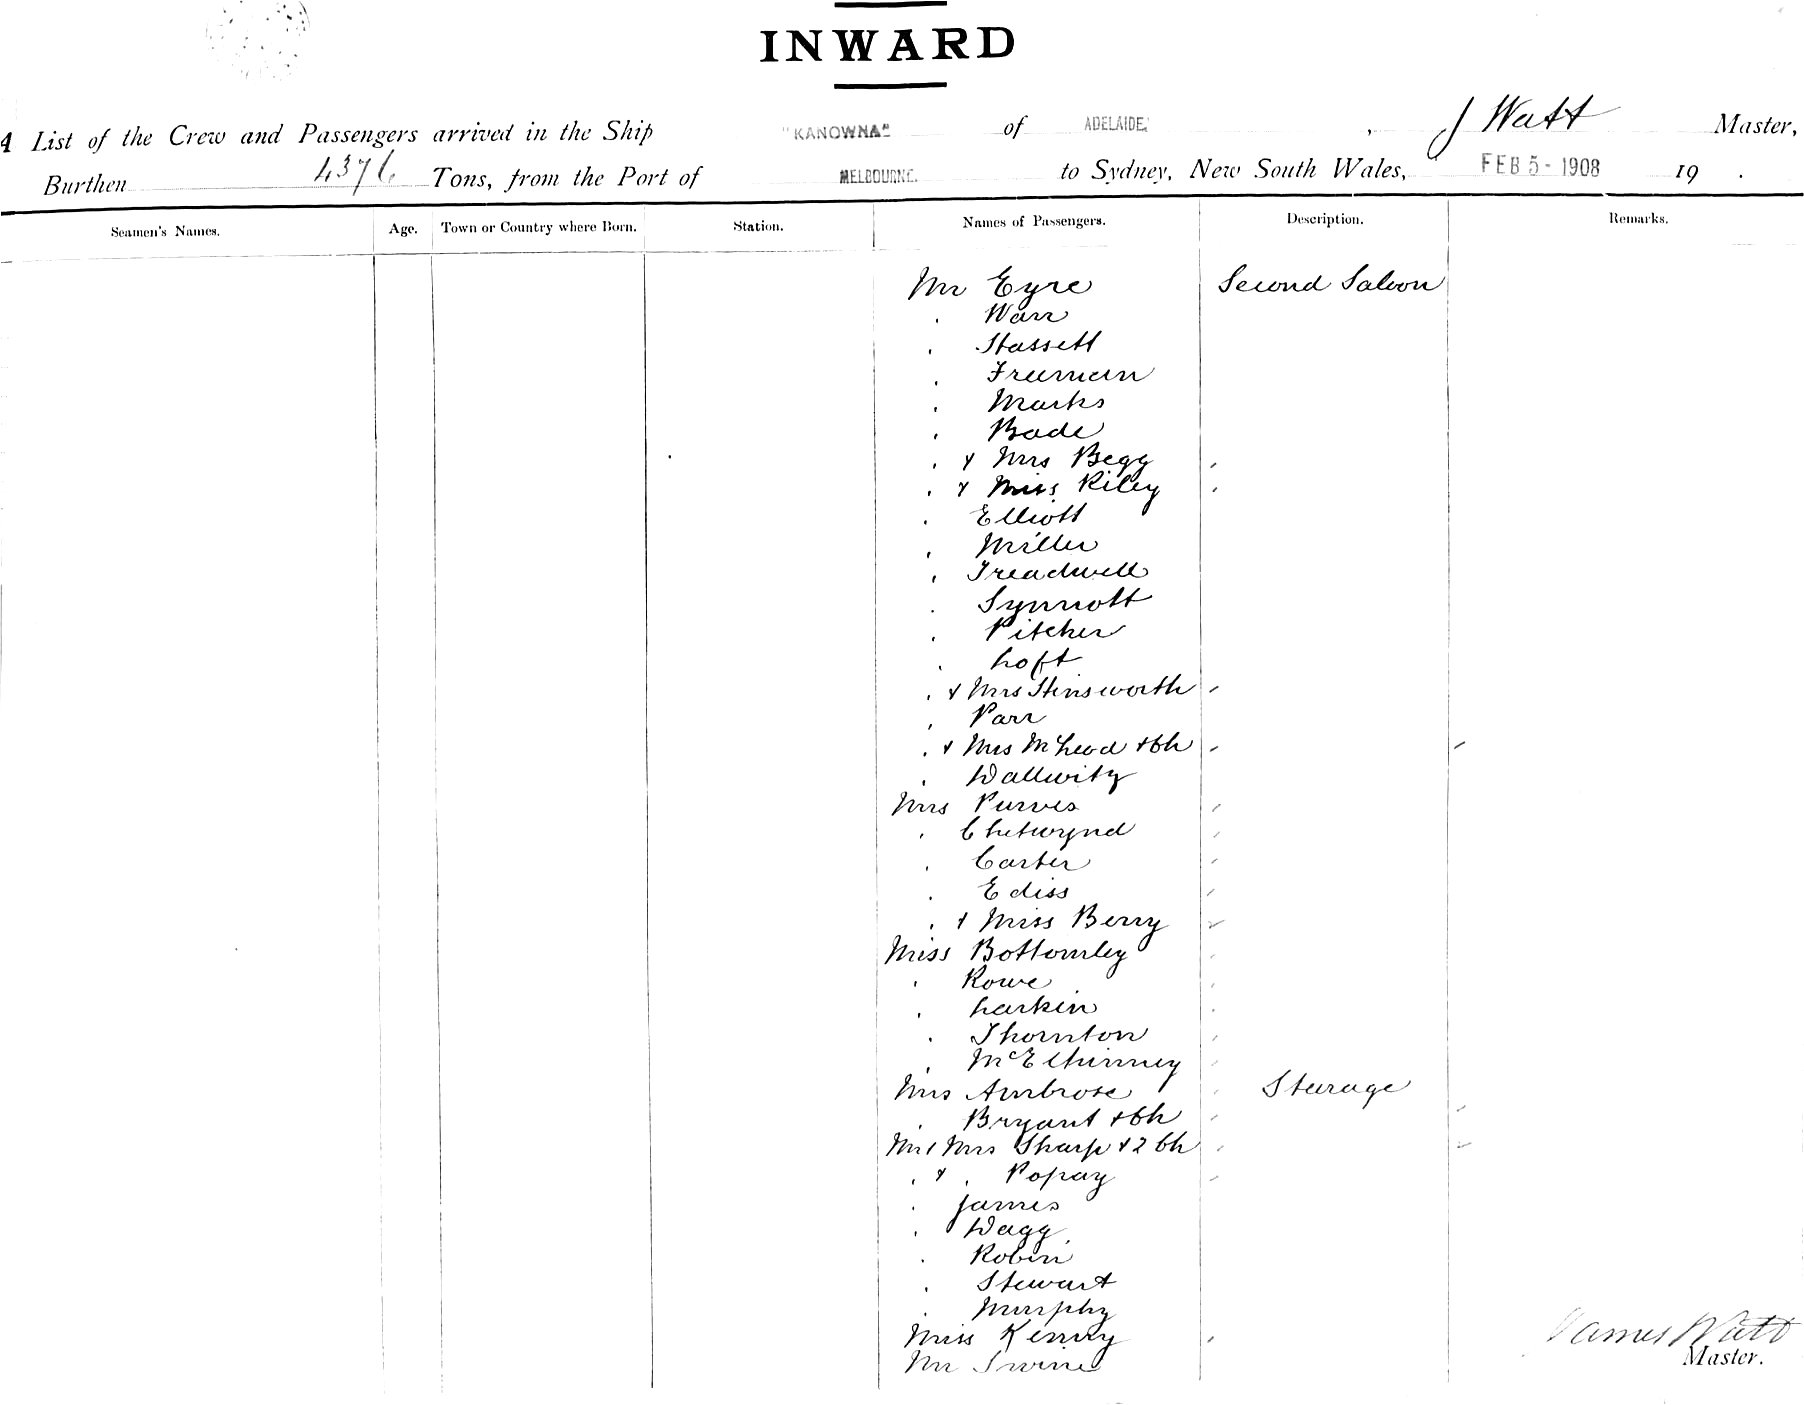 INWARD
A List of the Crew and Passengers arrived in the Ship "KANOWNA" of ADELAIDE, J Watt Master,
Burthen 4376 Tons, from the Port of MELBOURNE. to Sydney, New South Wales, FEB 5 - 1908 19 .
Seamen's Names. Age. Town or Country where Born. Station. Names of Passengers. Description. Remarks.
Mr Eyre Second Saloon
. Warr
. Hassett
. Freeman
. Marks
. Bade
. & Mrs Begg
. & Miss Riley
. Elliott
. Miller
. Treadwell
. Synnott
. Pitcher
. Loft
. & Mrs Hinsworth
. Parr
. & Mrs McLeod & Ch
. Wallwitz
Mrs Purves
. Chetwynd
. Carter
. Ediss
. & Miss Berry
Miss Bottomley
. Rowe
. Larkin
. Thornton
. McElhinney
Mrs Ambrose Steerage
. Bryant & Ch
Mr & Mrs Sharp & 2 Ch
. & . Popay
. James
. Wagg
. Robin
. Stewart
. Murphy
Miss Kenny
Mr Irvine
James Watt
Master.